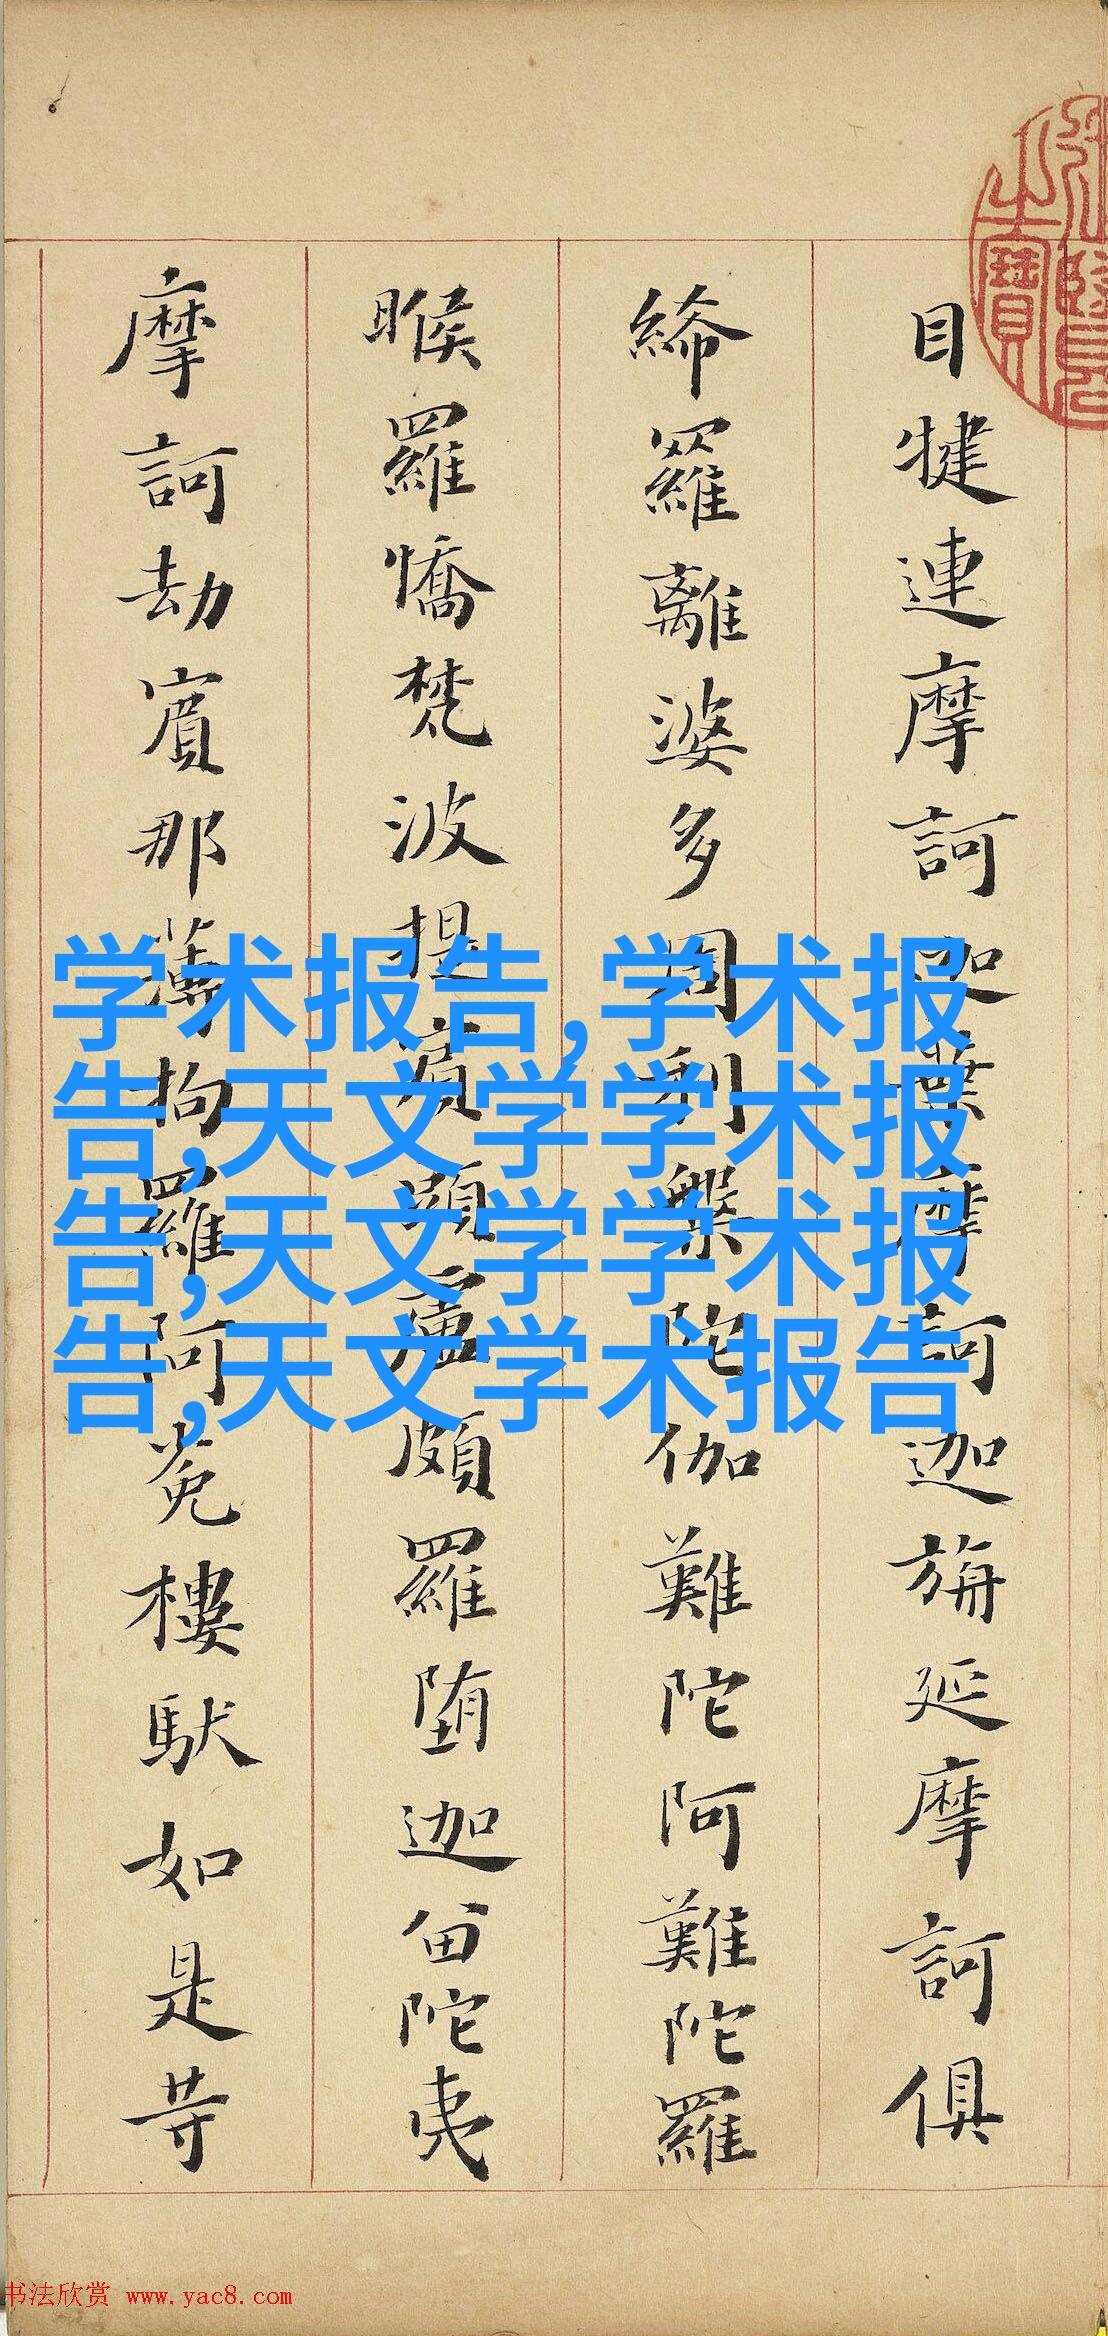 目犍連摩訶迦葉摩訶迦旃延摩訶俱
絺羅離婆多周利槃陀伽難陀阿難陀羅
睺羅憍梵波提賓頭盧頗羅堕迦留陀夷
摩訶劫賓那薄拘羅阿㝹樓馱如是等
学术报告,学术报
告,天文学学术报
告,天文学学术报
告,天文学术报告
书法欣赏 www.yac8.com